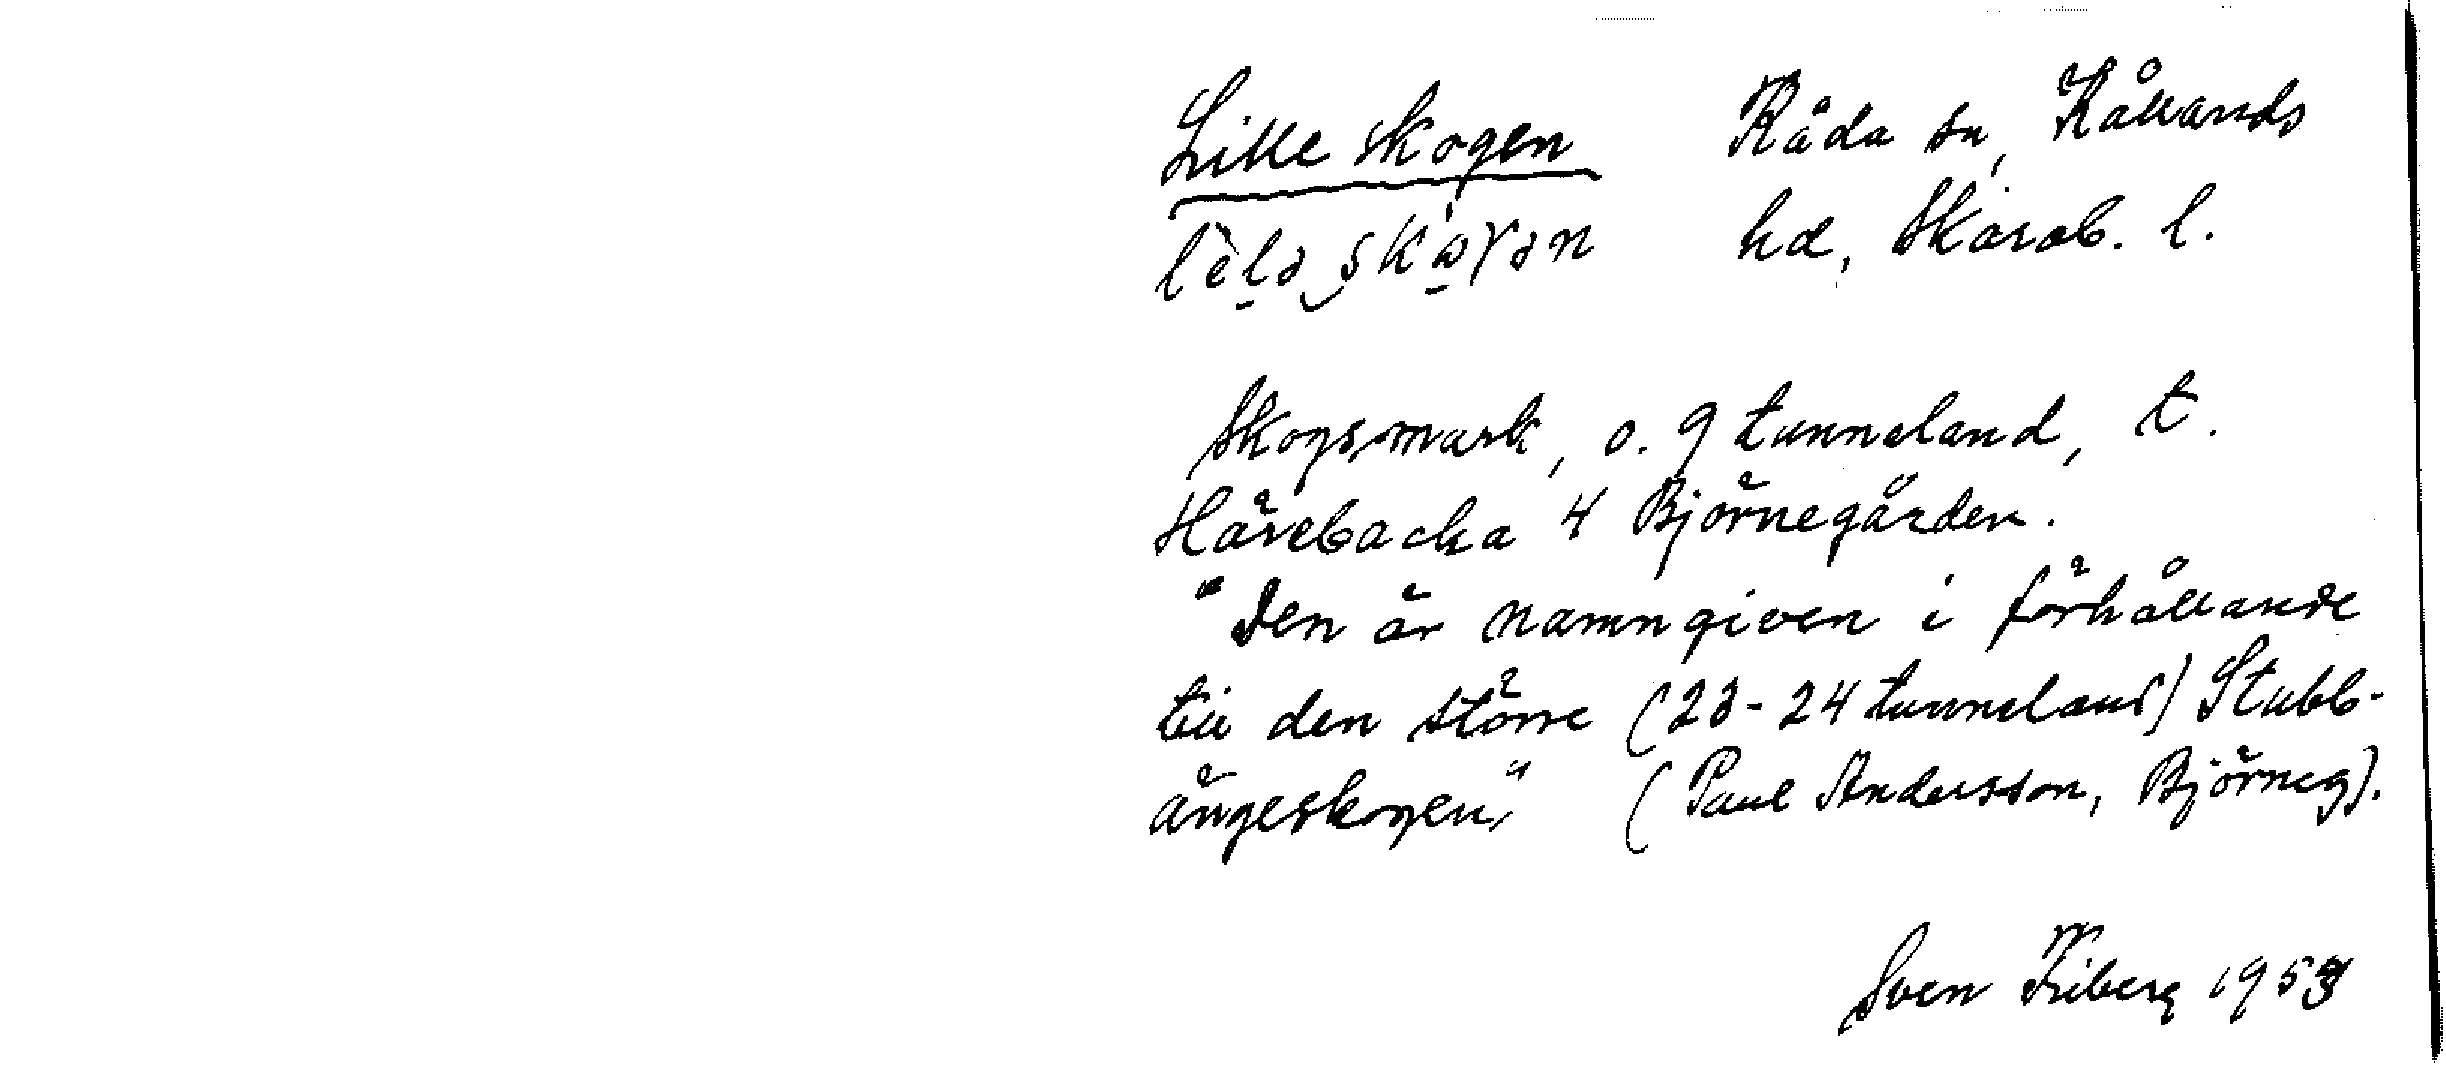 Lille skogen Råda sn, Kållands
lèlə skωγən hd, Skarab. l.
Skogsmark, o. 9 tunneland, t.
Hävebacka 4 Björnegården.
"Den är namngiven i förhållande
till den större (23-24 tunneland) Stubb-
ängeskogen." (Paul Andersson, Björneg).
Sven Friberg 1953